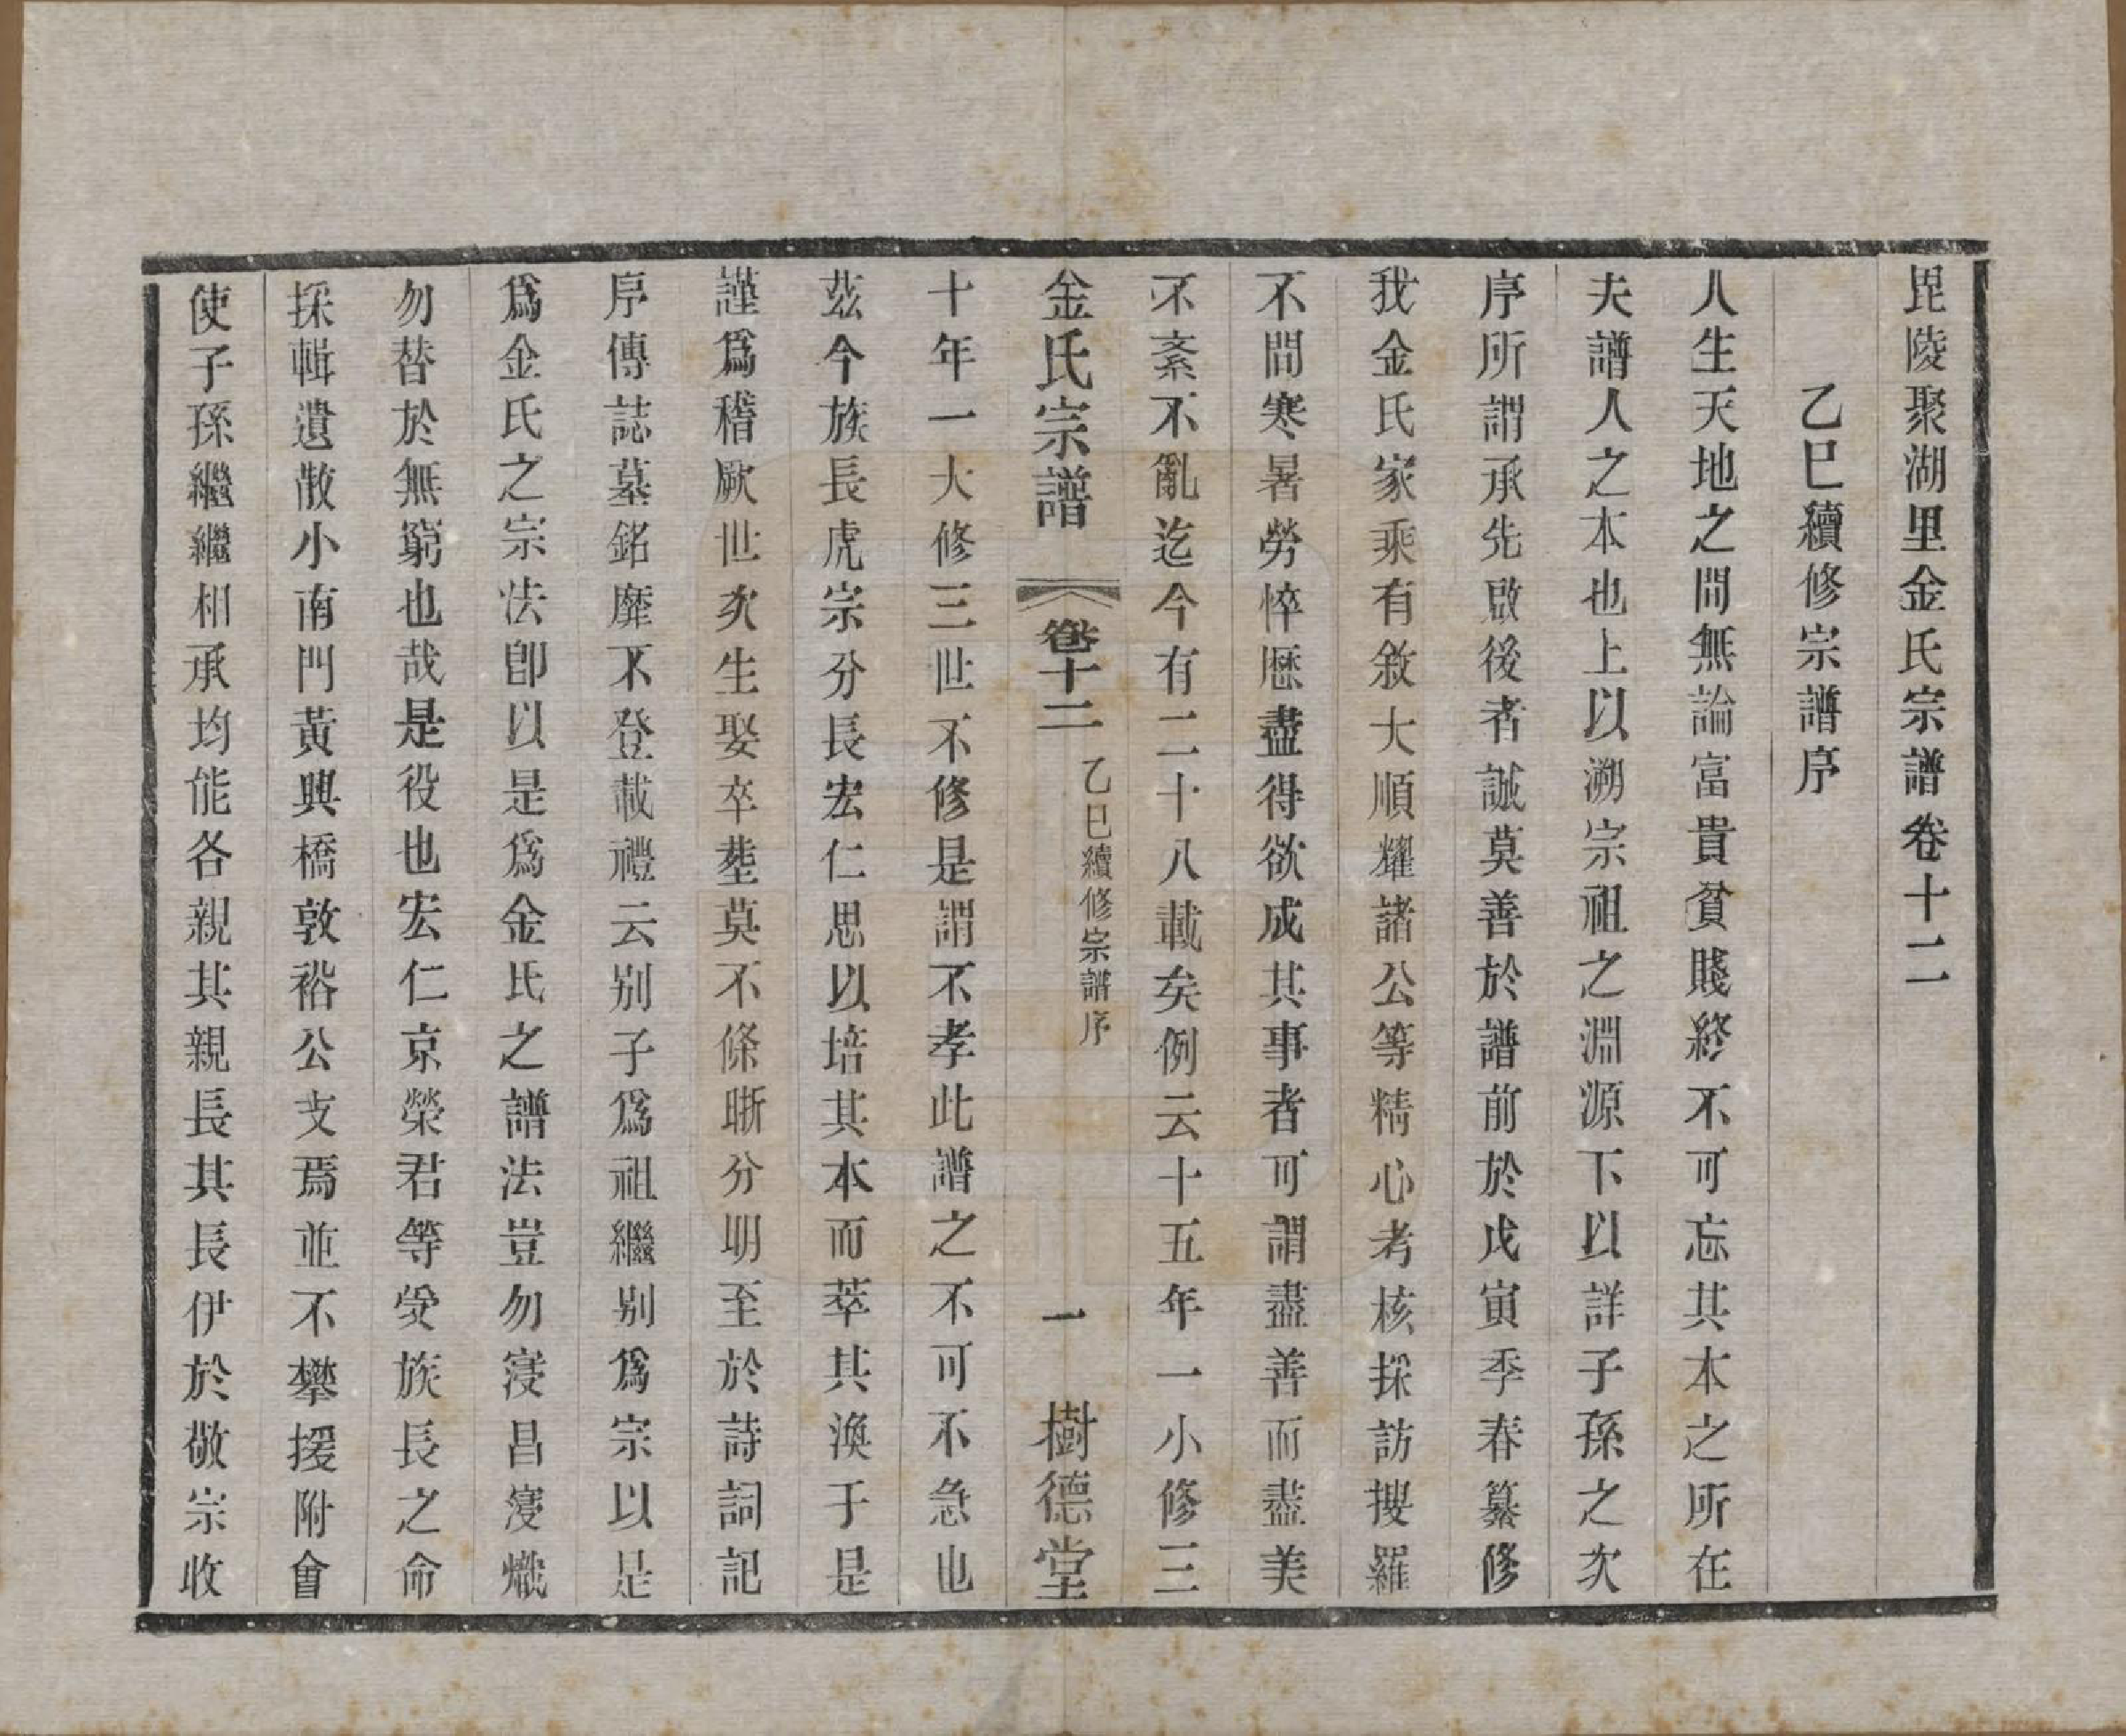 毘陵聚湖里金氏宗譜卷十二
乙巳續修宗譜序
人生天地之間無論富貴貧賤終不可忘其本之所在
夫譜人之本也上以溯宗祖之淵源下以詳子孫之次
序所謂承先啟後者誠莫善於譜前於戊寅季春纂修
我金氏家乘有敘大順耀諸公等精心考核採訪搜羅
不問寒暑勞悴歷盡得欲成其事者可謂盡善而盡美
不紊不亂迄今有二十八載矣例云十五年一小修三
金氏宗譜
卷十二
乙巳續修宗譜序
一
樹德堂
十年一大修三世不修是謂不孝此譜之不可不急也
茲今族長虎宗分長宏仁思以培其本而萃其渙于是
謹爲稽厥世次生娶卒塟莫不條晰分明至於詩詞記
序傳誌墓銘靡不登載禮云别子爲祖繼别爲宗以是
爲金氏之宗法卽以是爲金氏之譜法豈勿寖昌寖熾
勿替於無窮也哉是役也宏仁京榮君等受族長之命
採輯遺散小南門黃興橋敦裕公支焉並不攀援附會
使子孫繼繼相承均能各親其親長其長伊於敬宗收